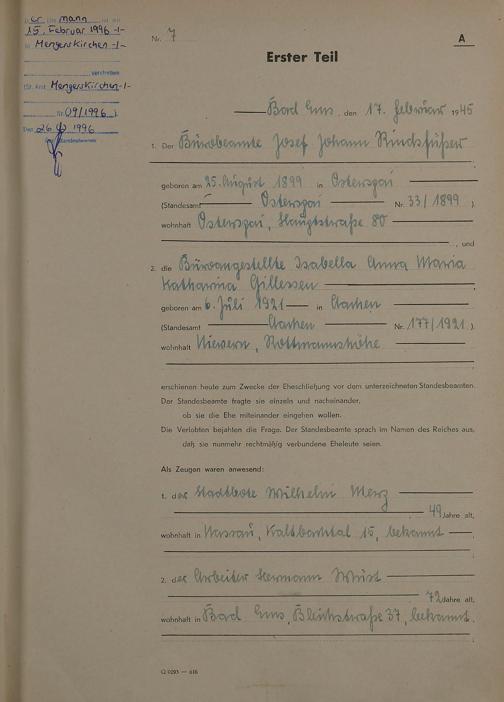 Der Ehemann ist am
15. Februar 1996 -/-
in Mengerskirchen -/-
verstorben
(St.Amt Mengerskirchen -/-
Nr. 09/1996 )
Den 26. 1996
Standesbeamte
Nr. 7
A
Erster Teil
Bad Ems, den 17. Februar 1945
1. Der Bürobeamte Josef Johann Rindsfüßer
geboren am 25. August 1899 in Osterspai
(Standesamt Osterspai Nr. 33/1899 ).
wohnhaft Osterspai, Hauptstraße 80
, und
2. die Büroangestellte Isabella Anna Maria
Katharina Gillessen
geboren am 6. Juli 1921 in Aachen
(Standesamt Aachen Nr. 177/1921 ).
wohnhaft Nievern,
erschienen heute zum Zwecke der Eheschließung vor dem unterzeichneten Standesbeamten.
Der Standesbeamte fragte sie einzeln und nacheinander,
ob sie die Ehe miteinander eingehen wollen.
Die Verlobten bejahten die Frage. Der Standesbeamte sprach im Namen des Reiches aus,
daß sie nunmehr rechtmäßig verbundene Eheleute seien.
Als Zeugen waren anwesend:
1. der Stadtbote Wilhelm Merz
49 Jahre alt,
wohnhaft in Nassau, Kaltbachtal 15, bekannt
2. der Arbeiter Hermann
72 Jahre alt,
wohnhaft in Bad Ems, Bleichstraße 37, bekannt.
Q 0293 — 616